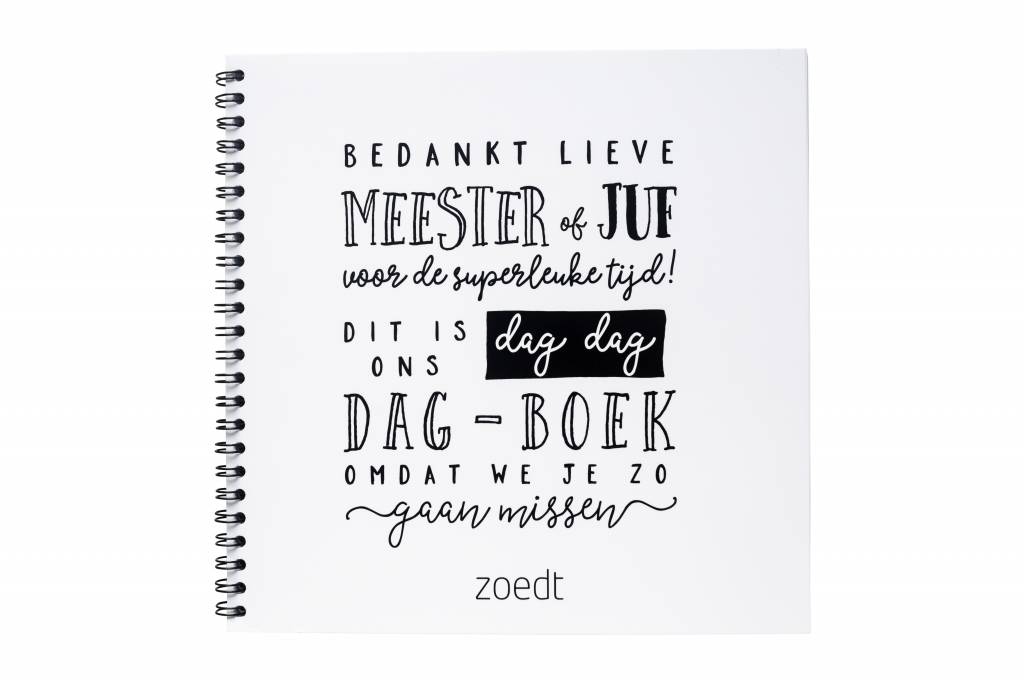 BEDANKT LIEVE
MEESTER of JUF
voor de superleuke tijd!
DIT IS ONS dag dag
DAG - BOEK
OMDAT WE JE ZO
gaan missen
zoedt